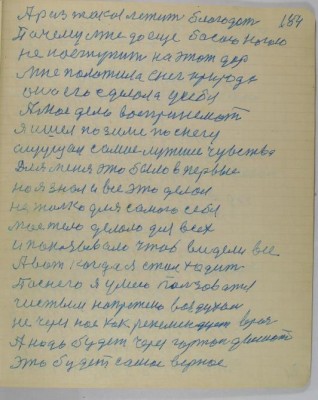 А раз такая летит благодат 184
Почему мне до еще босою ногою
не наступить на этот дар
мне положила снег природа
он его сделала у себя
А мое дело воспринимат
я ишел по зиме по снегу
ощущал самое лутшие чувство
Для меня это было в первые
но я знал и все это делал
не только для самого себя
мое тело делало для всех
и показывало чтоб видели все.
А вот когда я стал ходит
По снегу я умею ползоват
чистым напротено воздухом
не через нос как рекомендует врач
А надо будет через гортан дышат
это будет самое верное